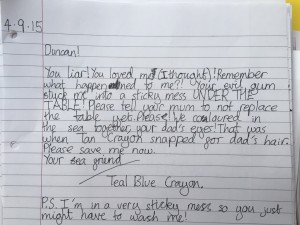 4.9.15
Duncan!
You liar! You loved me (I thought)! Remember
what happen ned to me?! Your evil gum
stuck me into a sticky mess UNDER THE
TABLE! Please tell your mum to not replace
the table yet. Please! We coloured in
the sea together, your dad's eyes! That was
when Tan Crayon snapped for dad's hair.
Please save me now.
Your sea friend
Teal Blue Crayon.
P.S. I'm in a very sticky mess so you just
might have to wash me!